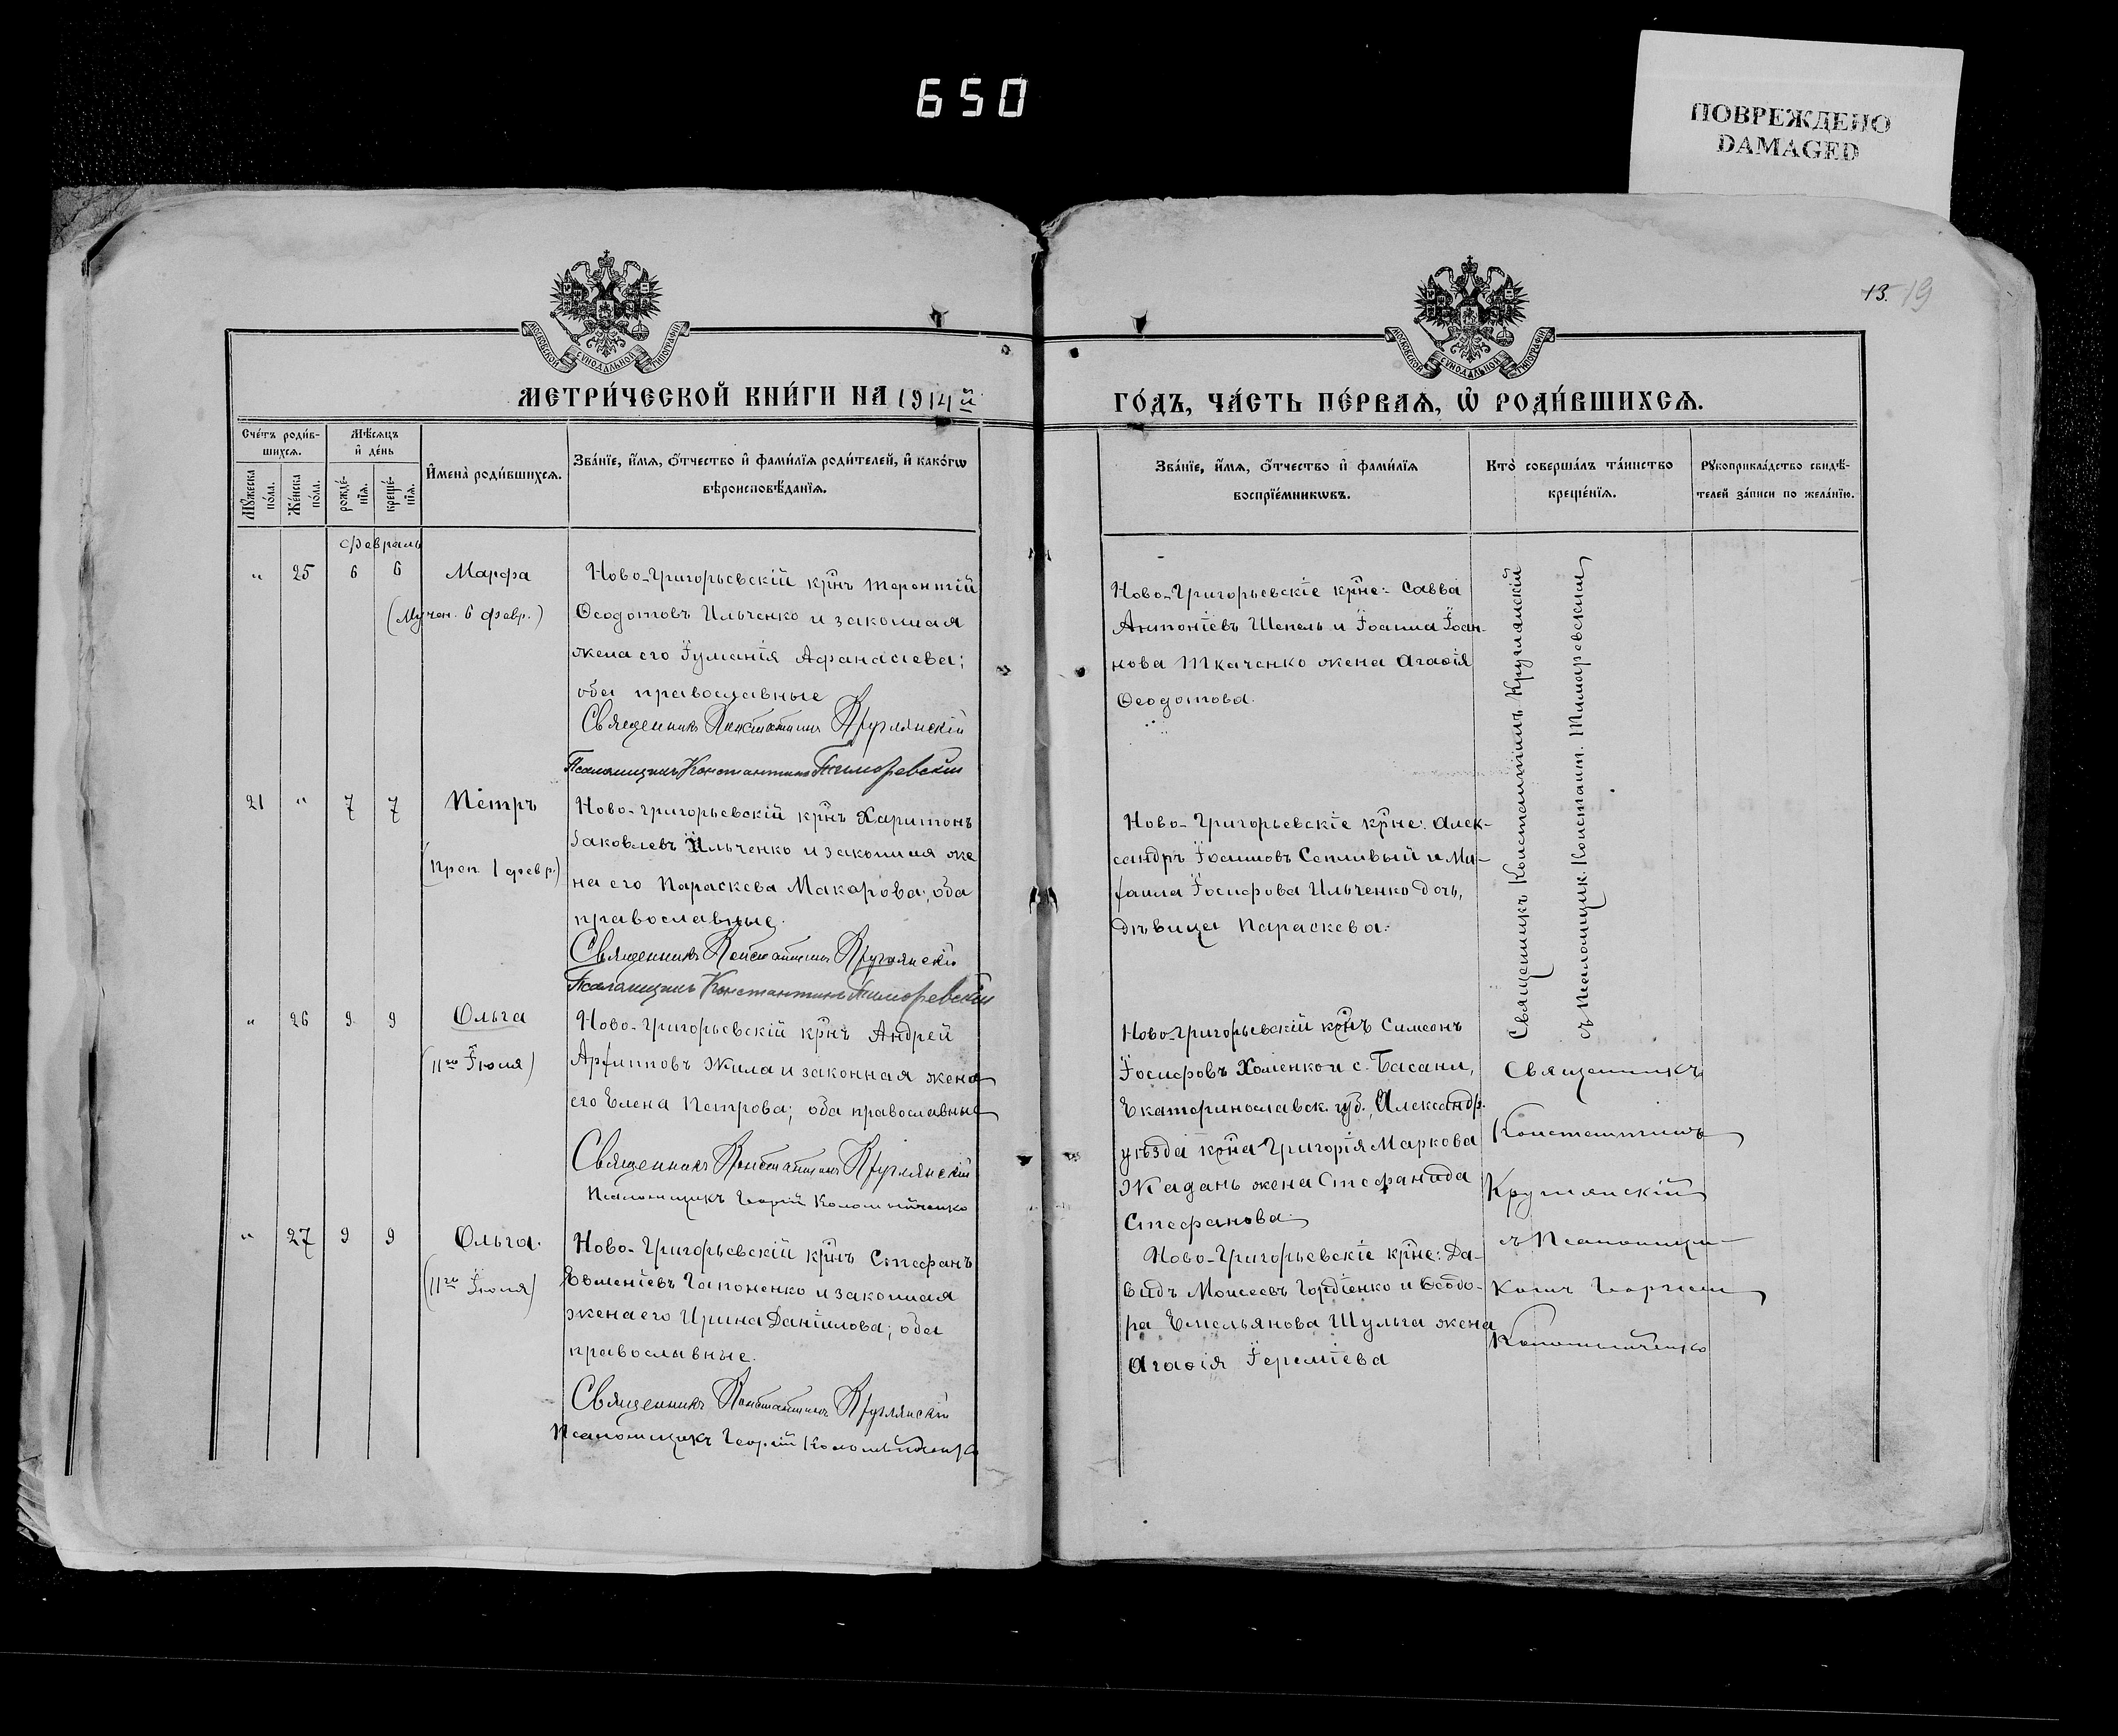 650
ПОВРЕЖДЕНО
DAMAGED
13. 19
МОСКОВСКОЙ СѴНОДАЛЬНОЙ ТИПОГРАФІИ
МОСКОВСКОЙ СѴНОДАЛЬНОЙ ТИПОГРАФІИ
МЕТРИ́ЧЕСКОЙ КНИ́ГИ НА 1914й
ГО́ДЪ, ЧА́СТЬ ПЕ́РВАѦ, Ѡ҆ РОДИ́ВШИХСѦ.
Сче́тъ роди́в-
шихсѧ.
Мѣ́сѧцъ
и҆ де́нь
Мꙋ́жеска по́ла.
Же́нска по́ла.
рожде́-нїѧ.
креще́-нїѧ.
И҆мена̀ роди́вшихсѧ.
Зва́нїе, и҆́мѧ, ѻ҆́тчество и҆ фами́лїѧ роди́телей, и҆ како́гѡ
вѣроисповѣ́данїѧ.
Зва́нїе, и҆́мѧ, ѻ҆́тчество и҆ фами́лїѧ
воспрїе́мникѡвъ.
Кто̀ соверша́лъ та́инство
креще́нїѧ.
Рꙋкоприкла́дство свидѣ́-
телей за́писи по жела́нїю.
Февраль
" 25 6 6 Марфа
(Мучен. 6 февр.)
Ново-Григорьевскій крнъ Терентій
Ѳеодотовъ Ильченко и законная
жена его Іуманія Афанасіева;
оба православные
Священникъ Константинъ Круглянскій
Псаломщикъ Константинъ Тиморевскій
Ново-Григорьевскіе крне: Савва
Антоніевъ Шепель и Іоанна Іоан-
нова Ткаченко жена Агаѳія
Ѳеодотова.
Священникъ Константинъ Круглянскій
съ Псаломщик. Константин. Тиморевским
21 " 7 7 Петръ
(Преп. 1 февр.)
Ново-Григорьевскій крнъ Харитонъ
Іаковлевъ Ильченко и законная же
на его Параскева Макарова; оба
православные.
Священникъ Константинъ Круглянскій
Псаломщикъ Константинъ Тиморевскій
Ново-Григорьевскіе крне: Алек-
сандръ Іоанновъ Сопливый и Ми-
хаила Іосифова Ильченко дочь,
дѣвица Параскева.
" 26 9 9 Ольга
(11го Іюля)
Ново-Григорьевскій крнъ Андрей
Архипповъ Жила и законная жена
его Елена Петрова; оба православные
Священникъ Константинъ Круглянскій
Псаломщикъ Георгій Коломійченко
Ново-Григорьевскій крнъ Симеонъ
Іосифовъ Хоменко и с. Басани,
Екатеринославск. губ., Александр.
уѣзда крна Григорія Маркова
Жадань жена Стефанида
Стефанова
Священникъ
Константинъ
Круглянскій
съ Псаломщи-
комъ Георгіем
Коломійченко
" 27 9 9 Ольга.
(11го Іюля)
Ново-Григорьевскій крнъ Стефанъ
Евменіевъ Гапоненко и законная
жена его Ирина Даніилова; оба
православные.
Священникъ Константинъ Круглянскій
Псаломщикъ Георгій Коломійченко
Ново-Григорьевскіе крне: Да-
видъ Моисеевъ Гордіенко и Ѳеодо-
ра Емельянова Шульга жена
Агаѳія Іереміева